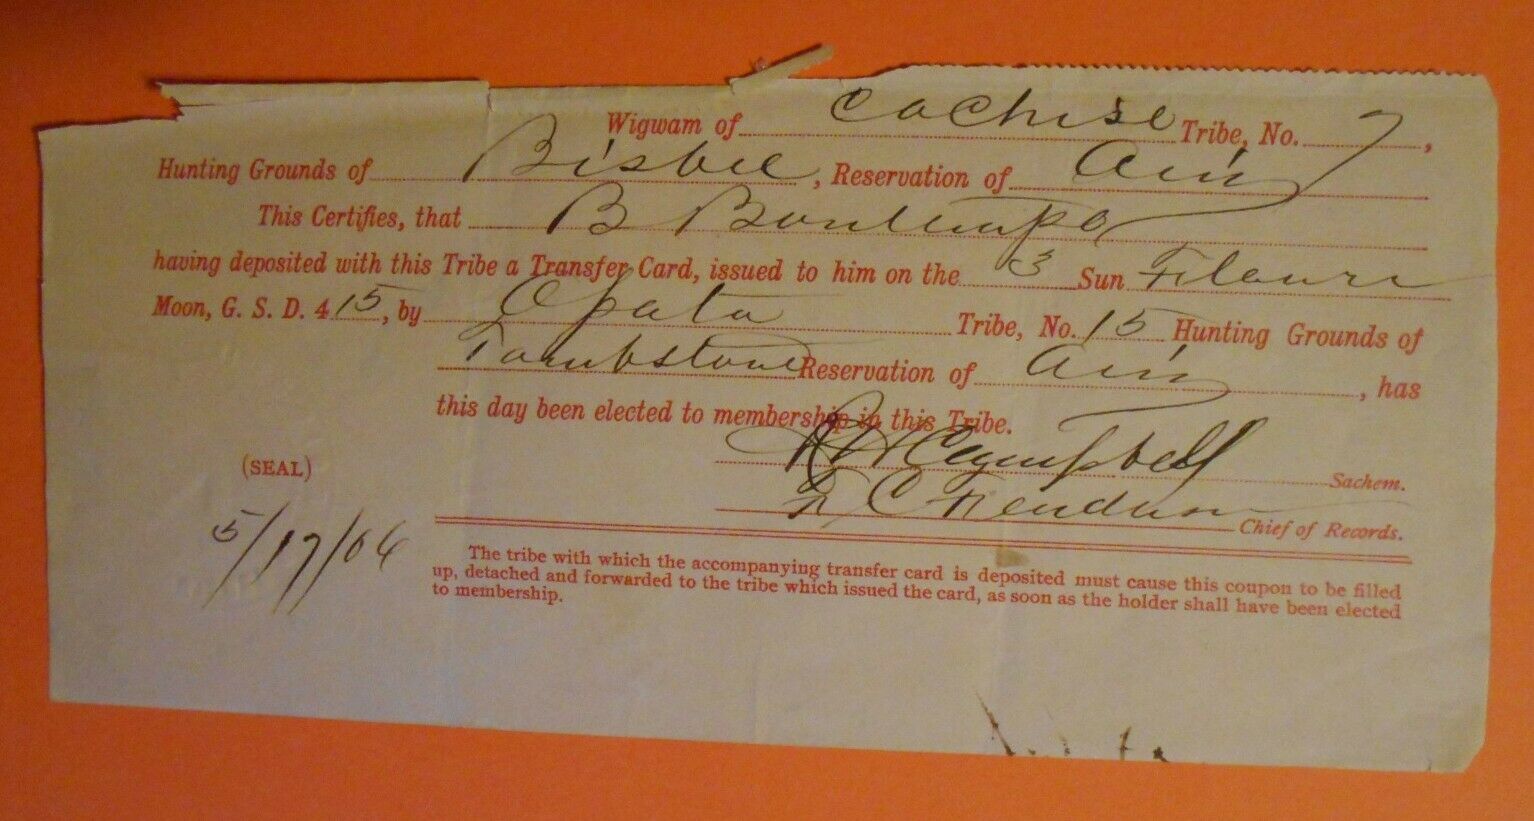 Wigwam of Cochise Tribe, No. 7,
Hunting Grounds of Bisbee, Reservation of Ariz
This Certifies, that B Bontempo
having deposited with this Tribe a Transfer Card, issued to him on the 3 Sun
Moon, G. S. D. 415, by Opata Tribe, No. 15 Hunting Grounds of
Tombstone Reservation of Ariz, has
this day been elected to membership in this Tribe.
Campbell Sachem.
(SEAL)
Chief of Records.
5/17/06
The tribe with which the accompanying transfer card is deposited must cause this coupon to be filled
up, detached and forwarded to the tribe which issued the card, as soon as the holder shall have been elected
to membership.